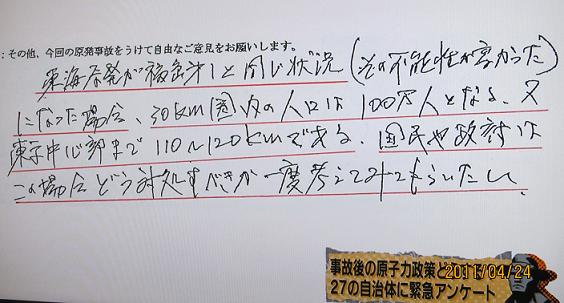 :その他、今回の原発事故をうけて自由なご意見をお願いします。
東海原発が福島第1と同じ状況(その可能性が高かった)
になった場合、30km圏内の人口は100万人となる、又
東京中心部まで110~120kmである、国民や政府は
この場合どう対処すべきか一度考えてみてもらいたい
事故後の原子力政策
27の自治体に緊急アンケート
2011/04/24